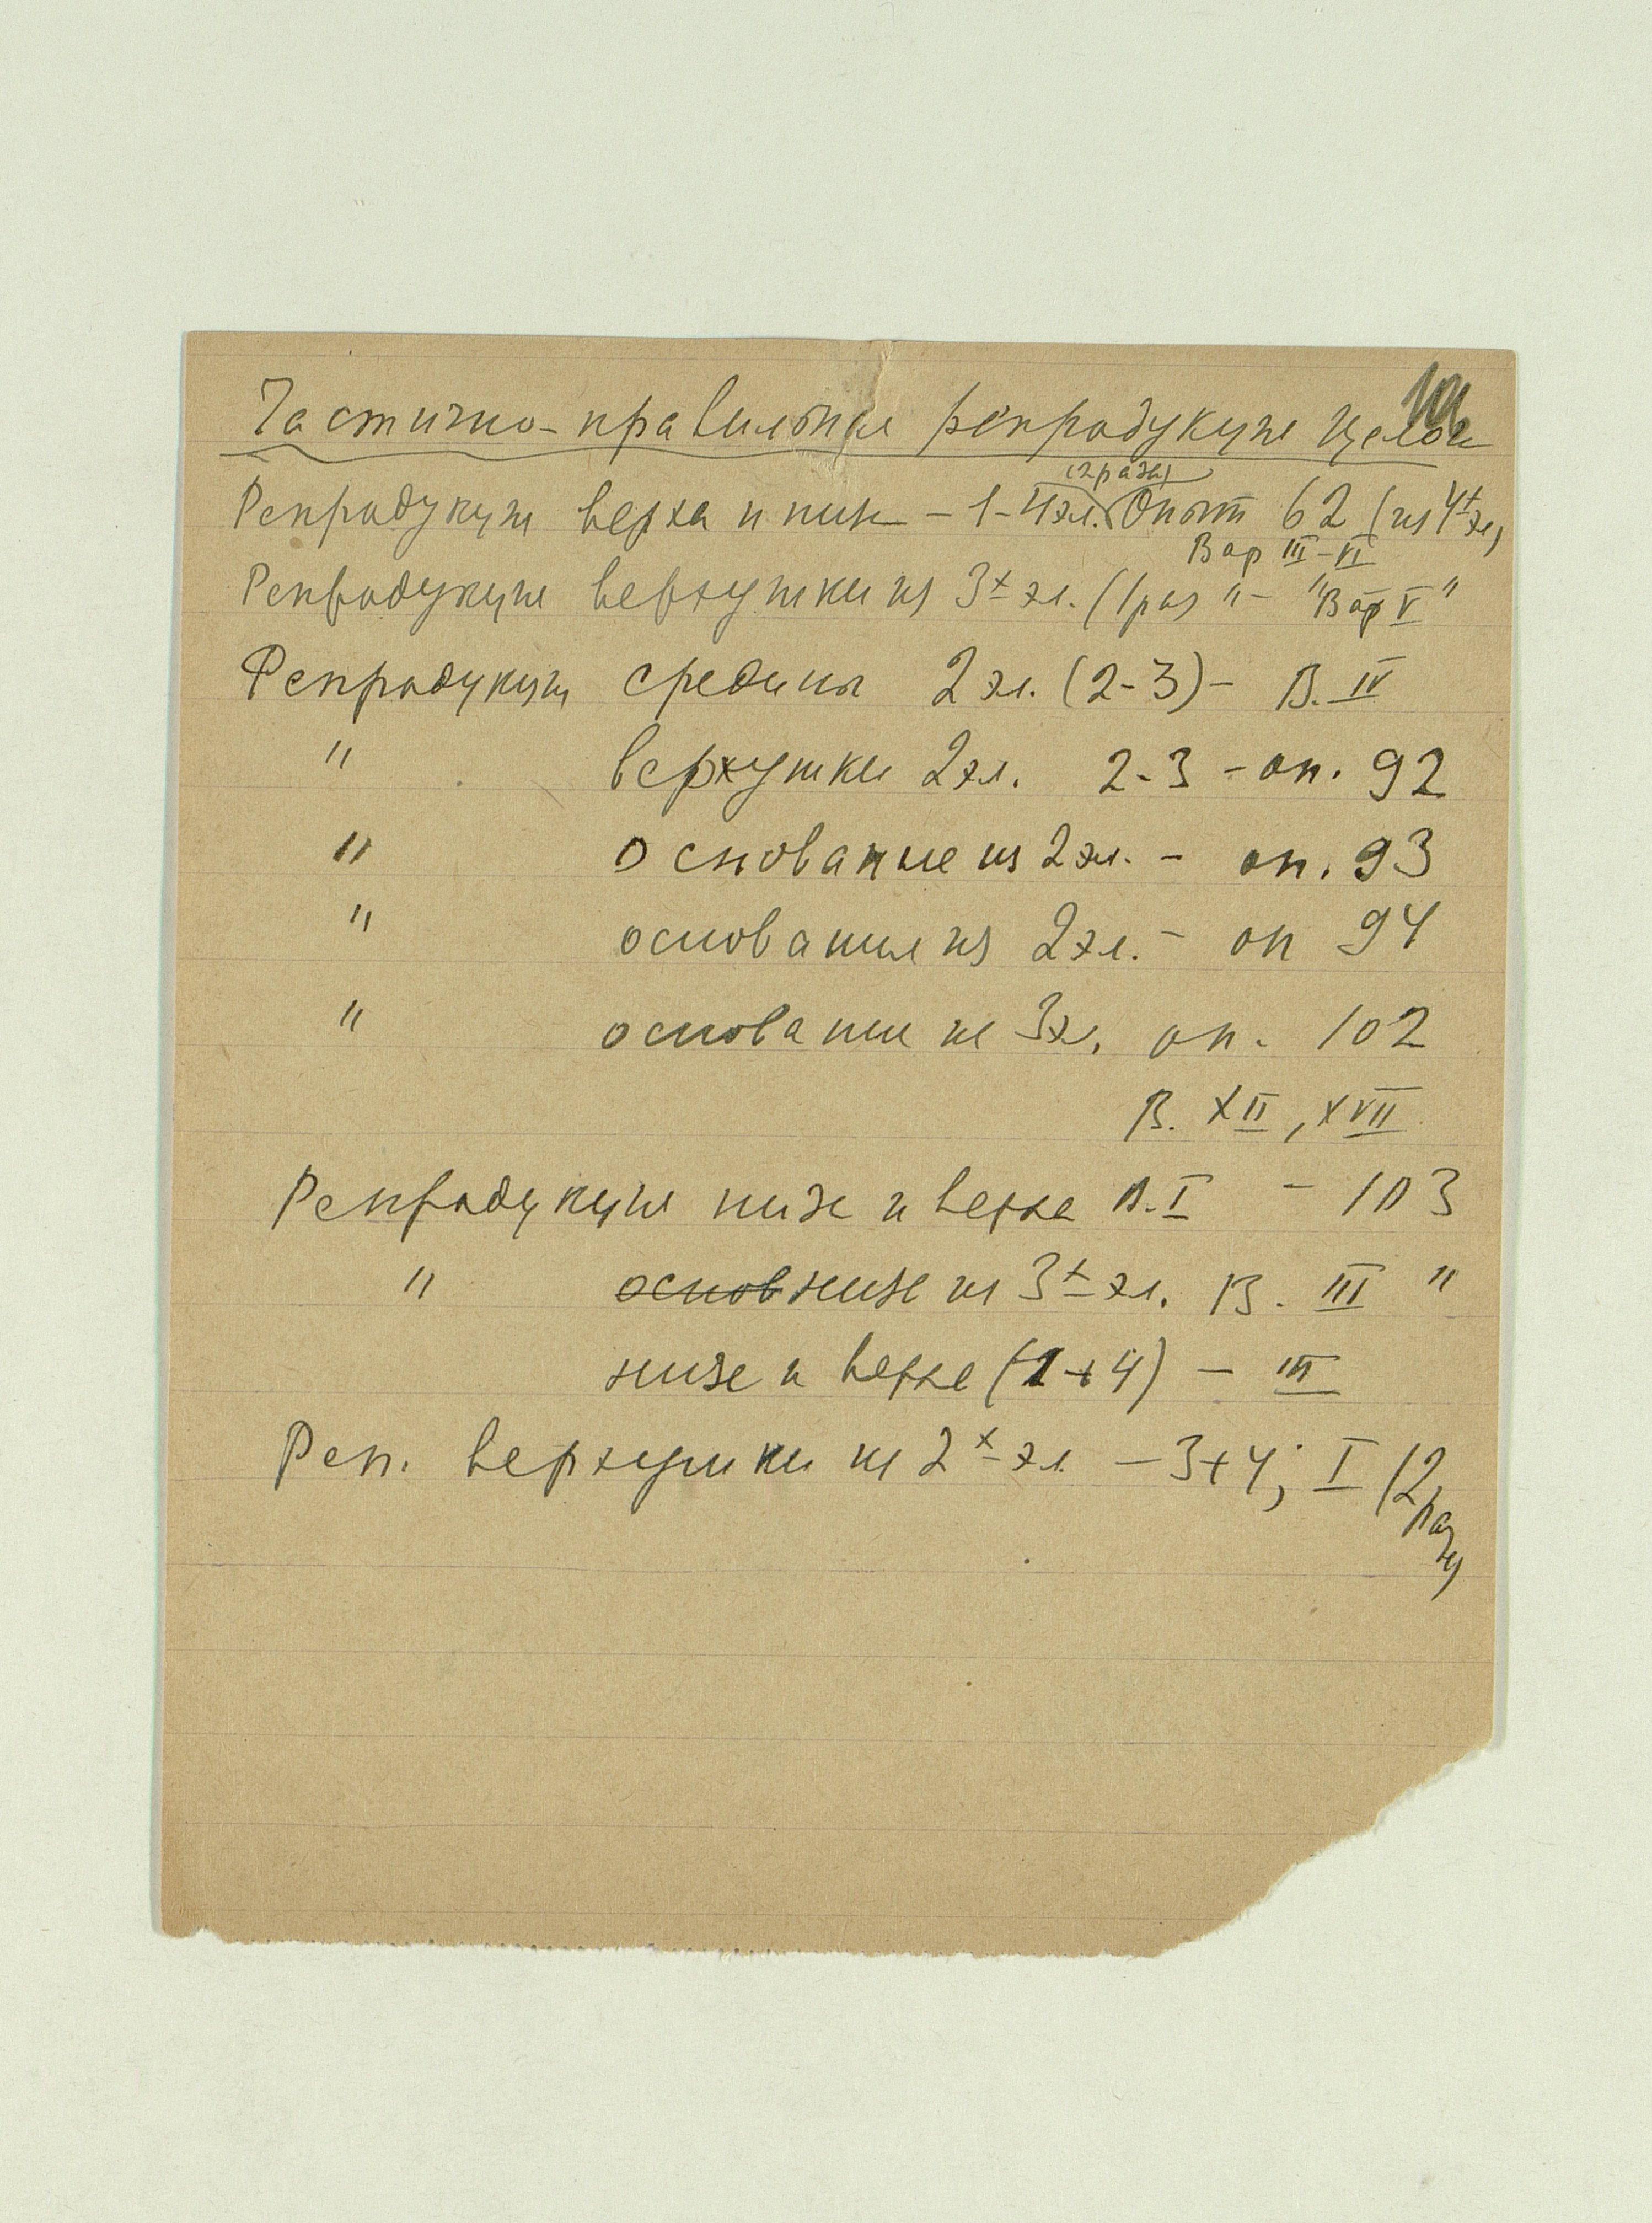 Частично-правильные репродукции целой
(2 раза)
Репродукция верха и низа – 1-4 эл. Опыт 62 (из 4х эл)
Вар III–VI
Репродукция верхушки из 3х эл. (1 раз " – "Вар V"
Репродукция средины 2 эл. (2-3) – В. IV
" верхушки 2 эл. 2-3 – оп. 92
" основание из 2 эл. – оп. 93
" основания из 2 эл. – оп 94
" основания из 3 эл. оп. 102
В. XII, XVII
Репродукция низа и верха В. I – 103
" основ низа из 3х эл. В. III "
низа и верха (1+4) – III
Реп. верхушки из 2х эл – 3+4; I (2 разу)